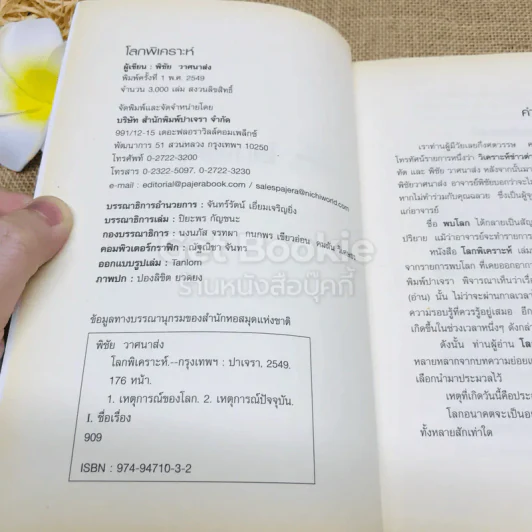 โลกพิเคราะห์
ผู้เขียน : พิชัย วาศนาส่ง
พิมพ์ครั้งที่ 1 พ.ศ. 2549
จำนวน 3,000 เล่ม สงวนลิขสิทธิ์
จัดพิมพ์และจัดจำหน่ายโดย
บริษัท สำนักพิมพ์ปาเจรา จำกัด
991/12-15 เดอะฟลอราวิลล์คอมเพล็กซ์
พัฒนาการ 51 สวนหลวง กรุงเทพฯ 10250
โทรศัพท์ 0-2722-3200
โทรสาร 0-2322-5097, 0-2722-3230
e-mail : editorial@pajerabook.com / salespajera@nichiworld.com
บรรณาธิการอำนวยการ : จันทร์รัตน์ เอี่ยมเจริญยิ่ง
บรรณาธิการเล่ม : ปิยะพร กัญชนะ
กองบรรณาธิการ : นงนภัส จรทผา กนกพร เขียวอ่อน
คอมพิวเตอร์กราฟิก : ณัฐณิชา จันทร
ออกแบบรูปเล่ม : Tanlom
ภาพปก : ปองลิขิต ยวดยง
Got Bookie
ร้านหนังสือบุ๊คกี้
ข้อมูลทางบรรณานุกรมของสำนักหอสมุดแห่งชาติ
พิชัย วาศนาส่ง
โลกพิเคราะห์.--กรุงเทพฯ : ปาเจรา, 2549.
176 หน้า.
1. เหตุการณ์ของโลก. 2. เหตุการณ์ปัจจุบัน.
I. ชื่อเรื่อง
909
ISBN : 974-94710-3-2
เราท่านผู้มีวัยเลยกึ่งศตวรรษ
โทรทัศน์รายการหนึ่งว่า วิเคราะห์ข่าวต่า
ทัต และ พิชัย วาศนาส่ง หลังจากนั้นมา
พิชัยวาศนาส่ง อาจารย์พิชัยบอกว่าจะไม
หากไม่ทำร่วมกับคุณฉลวย ซึ่งเป็นผู้จุ
แก่อาจารย์
ชื่อ พบโลก ได้กลายเป็นสัญ
ปริยาย แม้ว่าอาจารย์จะทำรายการ
หนังสือ โลกพิเคราะห์ เล่ม
จากรายการพบโลก ที่เคยออกอากา
พิมพ์ปาเจรา พิจารณาเห็นว่าเรื่อ
(อ่าน) นั้น ไม่ว่าจะผ่านกาลเวลา
ความรอบรู้ที่ควรรู้อยู่เสมอ อีก
เกิดขึ้นในช่วงเวลาหนึ่งๆ ดังกล่า
ดังนั้น ท่านผู้อ่าน โล
หลายหลากจากบทความย่อยแ
เลือกนำมาประมวลไว้
เหตุที่เกิดวันนี้คือประ
โลกอนาคตจะเป็นอย
ทั้งหลายสักเท่าใด